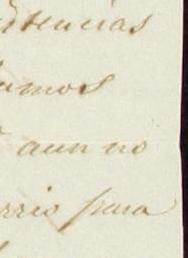 tencias
amos
aun no
rrio para